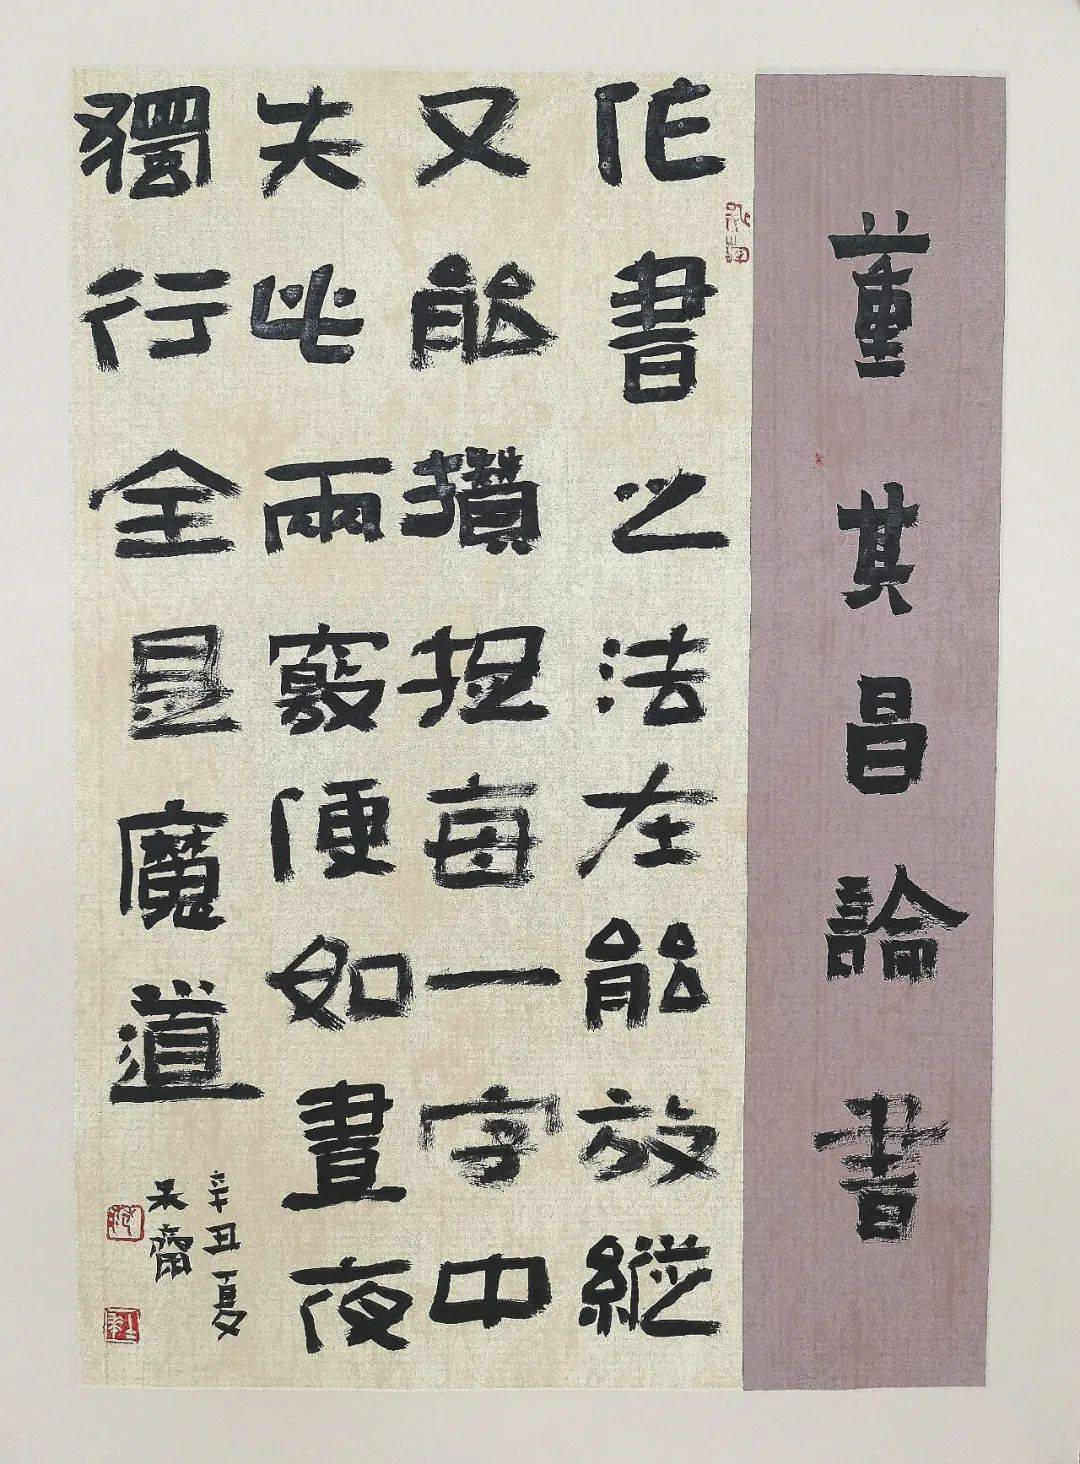 董其昌論書
作書之法在能放縱
又能攢捉每一字中
失此兩竅便如晝夜
獨行全是魔道
辛丑夏